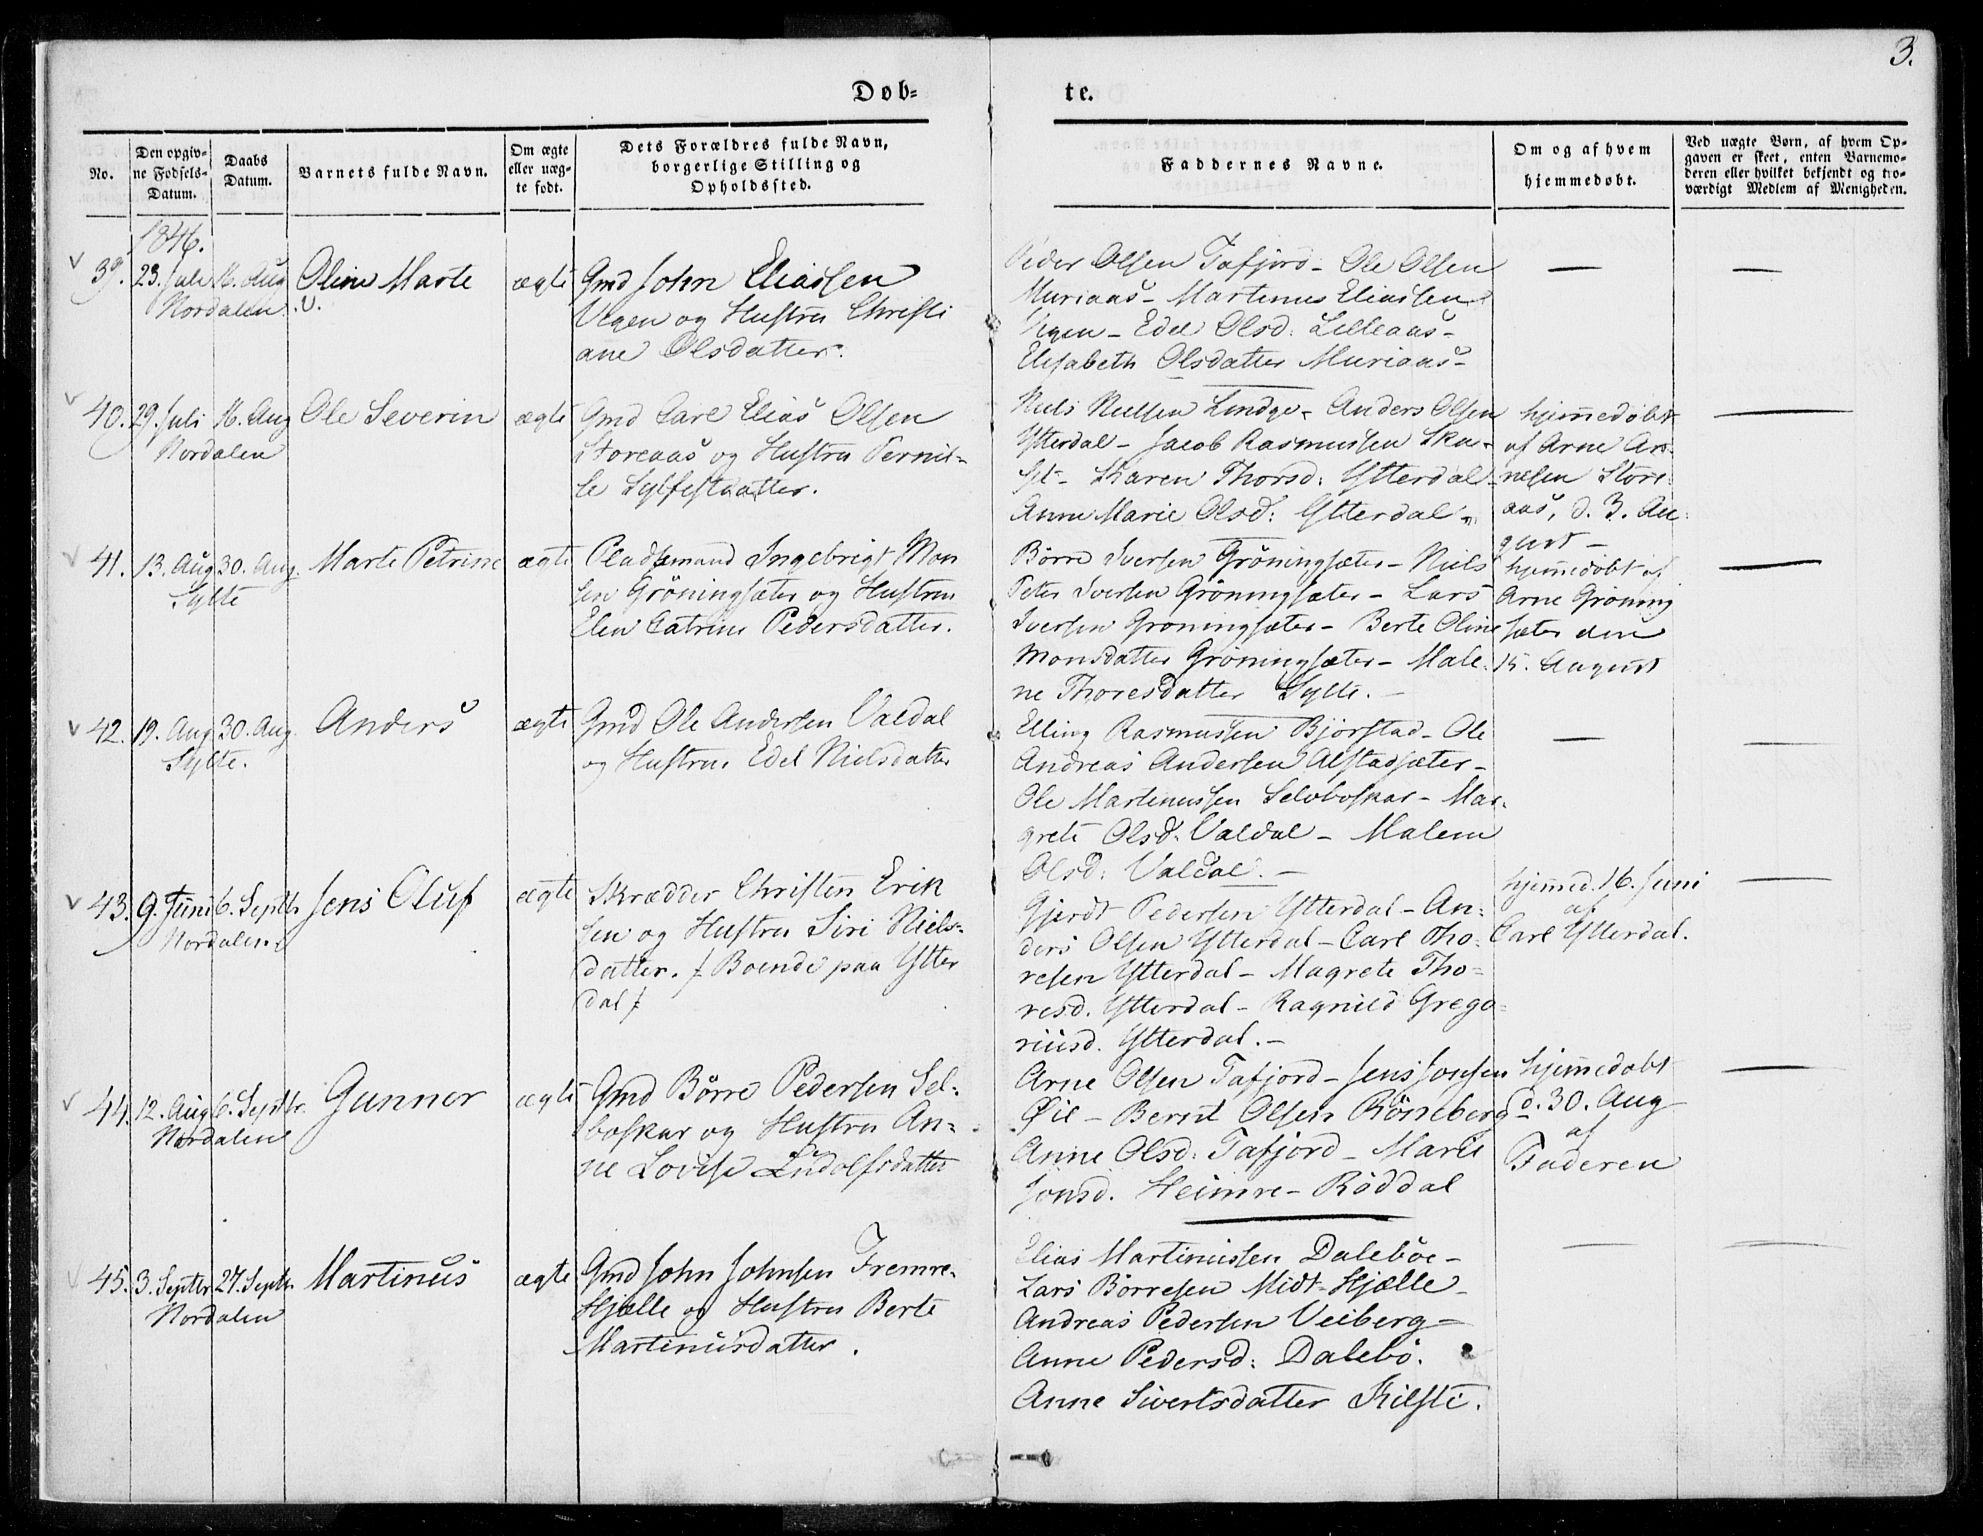 3.
Døb-
te.
No.
Den opgiv-
ne Fødsels-
Datum.
Daabs
Datum.
Barnets fulde Navn.
Om ægte
eller uæg-
te født.
Dets Forældres fulde Navn,
borgerlige Stilling og
Opholdssted.
Faddernes Navne.
Om og af hvem
hjemmedøbt.
Ved uægte Børn, af hvem Op-
gaven er skeet, enten Barnemo-
deren eller hvilket bekjendt og tro-
værdigt Medlem af Menigheden.
1846.
39. 23. Juli 16. Aug
Nordalen
Oline Marte
ægte
Gmd John Eliassen
Vegen og Hustru Christi
ane Olsdatter.
Peder Olsen Tafjord - Ole Olsen
Muriaas - Martinus Eliassen
Vegen - Edel Olsd: Lilleaas -
Elisabeth Olsdatter Muriaas -
40. 29. Juli 16. Aug
Nordalen
Ole Severin
ægte
Gmd Carl Elias Olsen
Storeaas og Hustru Pernil-
le Sylfestdatter.
Niels Nielsen Linge - Anders Olsen
Ytterdal - Jacob Rasmussen Ska-
- Karen Thorsd: Ytterdal
Anne Marie Olsd: Ytterdal -
hjemmedøbt
af Arne Ar-
nesen Store-
aas, d. 3. Au-
gust -
41. 13. Aug 30. Aug.
Sylte
Marte Petrine
ægte
Pladsmand Ingebrigt Mon
sen Grøningsæter og Hustru
Elen Catrine Pedersdatter.
Børre Iversen Grøningsæter - Niels
Peter Iversen Grøningsæter - Lars
Iversen Grøningsæter - Berte Oline
Monsdatter Grøningsæter - Male-
ne Thoresdatter Sylte. -
hjemmedøbt af
Arne Grøning
sæter den
15. August
42. 19. Aug 30. Aug.
Sylte.
Anders
ægte
Gmd Ole Andersen Valdal
og Hustru Edel Nielsdatter
Elling Rasmussen Bjørstad - Ole
Andreas Andersen Alstadsæter -
Ole Martinussen Selboskar - Mar-
grete Olsd: Valdal - Malene
Olsd: Valdal. -
43. 9. Juni 6. Septbr
Nordalen
Jens Oluf
ægte
Skrædder Christen Erik
sen og Hustru Siri Niels-
datter. / Boende paa Ytter
dal /
Gjerdt Pedersen Ytterdal - An-
ders Olsen Ytterdal - Carl Tho-
resen Ytterdal - Magrete Tho-
resd. Ytterdal - Ragnild Grego-
riusd. Ytterdal. -
hjemmed. 16. Juni
af
Carl Ytterdal.
44. 12. Aug 6. Septbr.
Nordalen
Gunner
ægte
Gmd Børre Pedersen Sel-
boskar og Hustru An-
ne Lovise Ludolfsdatter
Arne Olsen Tafjord - Jens Jonsen
Øie - Bernt Olsen Røneberg
Anne Olsd: Tafjord - Marte
Jonsd. Heimre - Røddal
hjemmedøbt
d. 30. Aug
af
Faderen
45. 3. Septbr 27. Septbr.
Nordalen
Martinus
ægte
Gmd John Johnsen Fremre-
Hjelle og Hustru Berte
Martinusdatter.
Elias Martinussen Dalebøe -
Lars Børresen Midt-Hjælle -
Andreas Pedersen Veiberg -
Anne Pedersd: Dalebø.
Anne Sivertsdatter Kilsti.